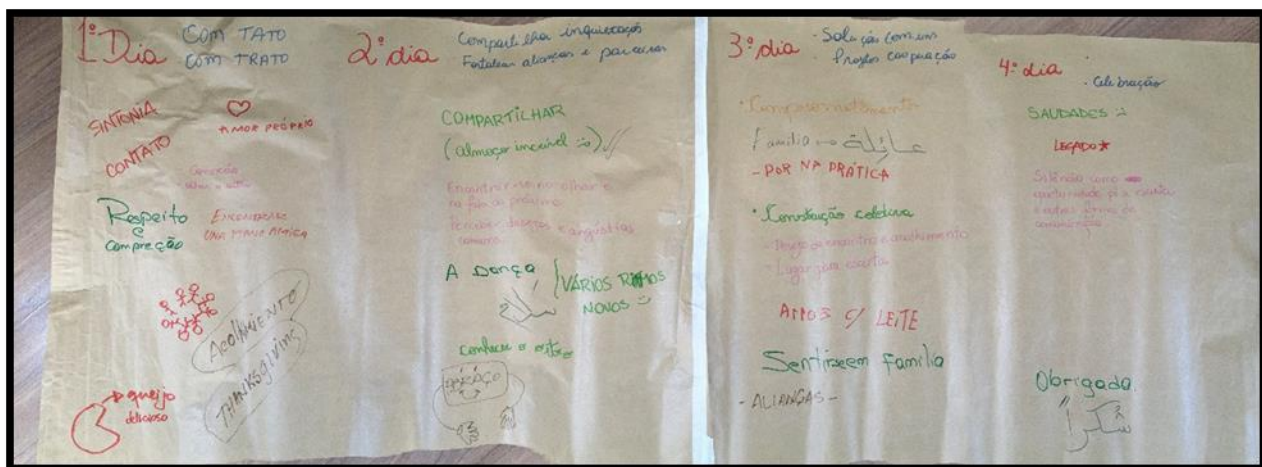 1º Dia
COM TATO
COM TRATO
SINTONIA
AMOR PRÓPRIO
CONTATO
Conexão
Respeito
e
compreção
ENCONTRAR
UNA MANO AMIGA
ACOLHIMENTO
THANKSGIVING
queijo
delicioso
2º dia
Compartilhar inquietações
Fortalecer alianças e parcerias
COMPARTILHAR
(almoço incrível :))
Encontrar-se no olhar e
na fala do próximo
Perceber desejos e angústias
comuns
A Dança
VÁRIOS RITMOS
NOVOS
conhecer o outro
ABRAÇO
3º dia
- Solução comum
Projetos cooperação
• Comprometimento
Família → عائلة
- POR NA PRÁTICA
• Construção coletiva
- Desejo de encontro e acolhimento
- Lugar para escuta
ARROZ C/ LEITE
Sentir se em família
- ALIANÇAS -
4º dia
- Celebração
SAUDADES
LEGADO*
Silêncio como
oportunidade p/ a escuta
e outras formas de
comunicação
Obrigada
شكراً